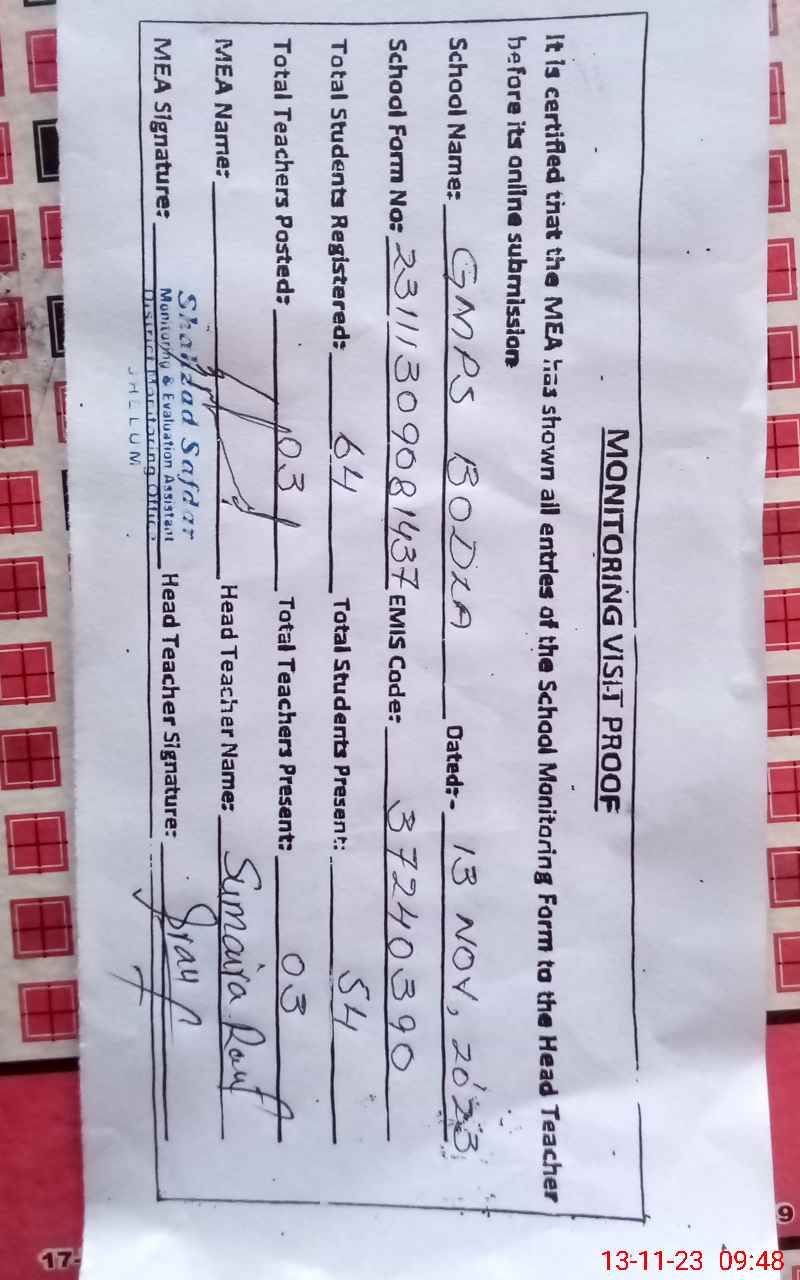 MONITORING VISIT PROOF
It is certified that the MEA has shown all entries of the School Monitoring Form to the Head Teacher
before its online submission
School Name: GMPS BODLA Dated:- 13 NOV, 2023
School Form No: 2311130909081437 EMIS Code: 37240390
Total Students Registered: 64 Total Students Present: 54
Total Teachers Posted: 03 Total Teachers Present: 03
MEA Name: Shahzad Safdar Head Teacher Name: Sumaira Rauf
Monitoring & Evaluation Assistant
MEA Signature: District Monitoring Office Head Teacher Signature: Srauf
JHELUM
17-
9
13-11-23 09:48